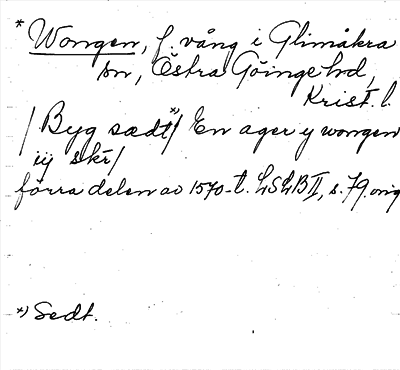 * Wongen, f. vång i Glimåkra
sn, Östra Göinge hd,
Krist. l.
/ Byg sædt*) / En ager y wongen
iij skr /
förra delen av 1570-t. LSLB II, s. 79. orig
*) Sedt.